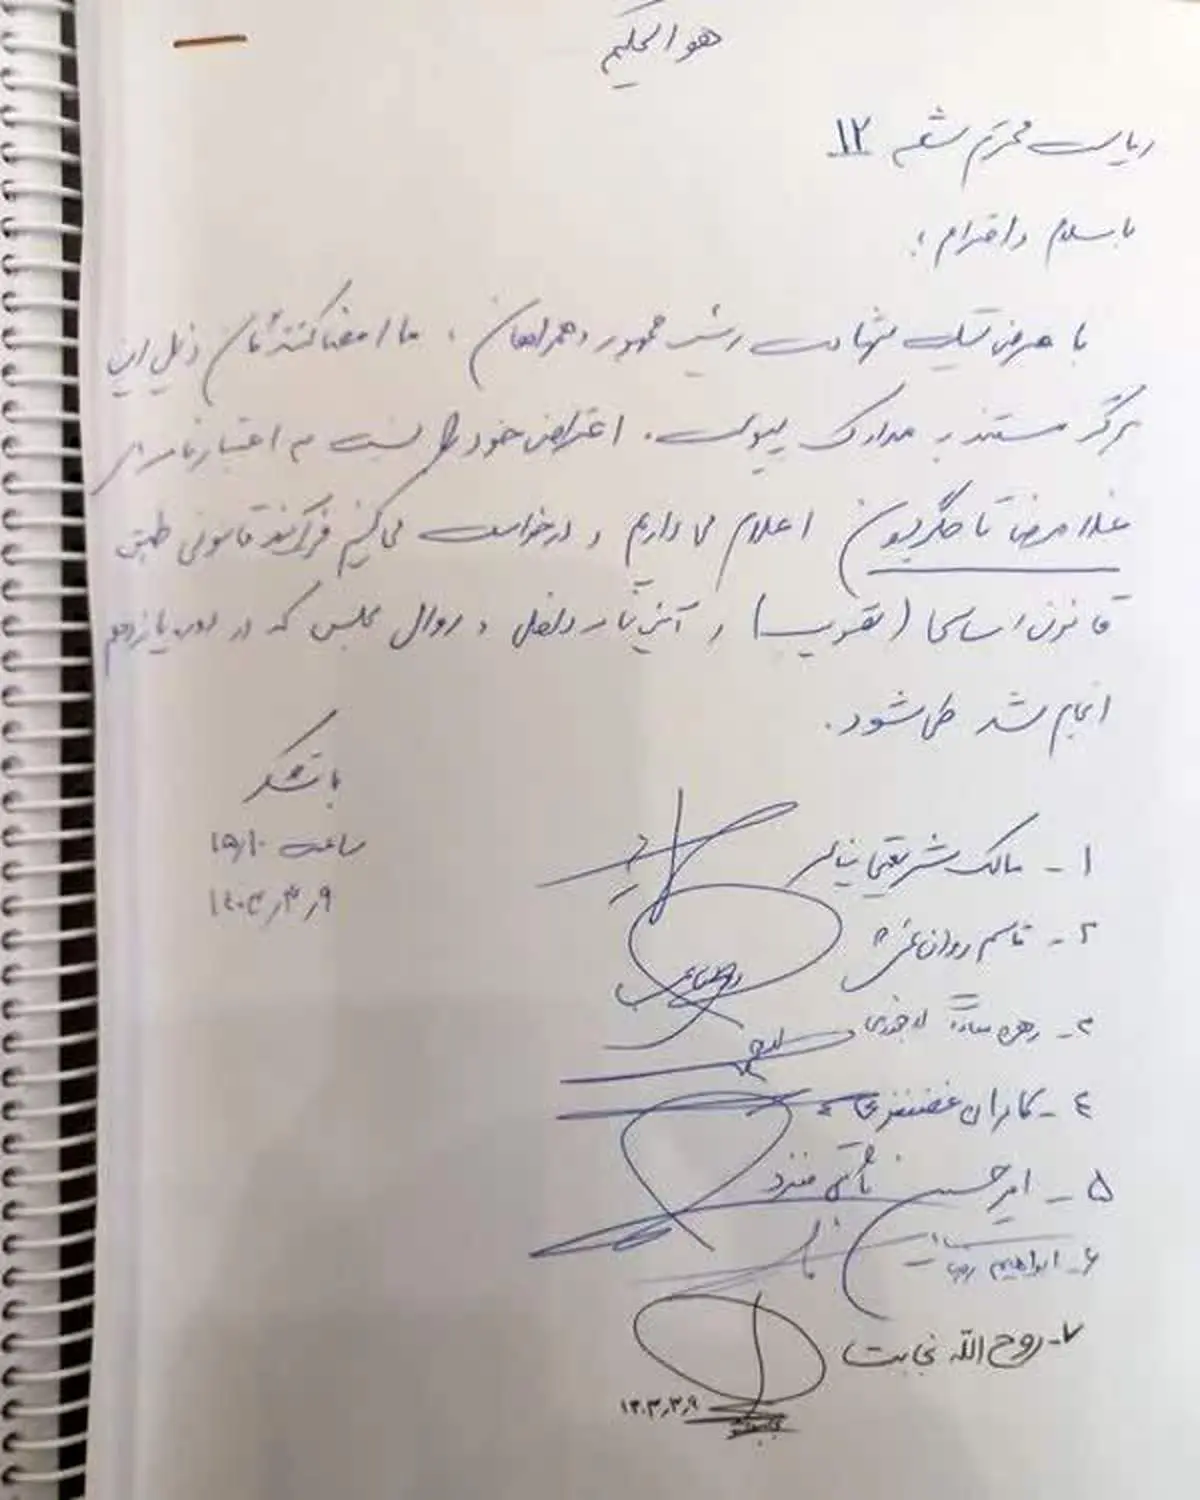 هو الحکیم
ریاست محترم شعبه ۱۲
با سلام و احترام؛
با عرض تسلیت شهادت رئیس جمهور و همراهان، ما امضا کنندگان ذیل این
برگه مستند به مدارک پیوست. اعتراض خود را نسبت به اعتبارنامه
غلامرضا تاجگردون اعلام می داریم و درخواست می کنیم فرآیند قانونی طبق
قانون اساسی ( ) و آئین نامه داخلی و روال مجلس که در دوره یازدهم
انجام شد طی شود.
با تشکر
ساعت ۱۵/۱۰
۱۴۰۳/۳/۹
۱- مالک شریعتی نیاسر
۲- قاسم روان بخش
۳- زهره سادات لاجوردی
۴- کامران غضنفری
۵- امیرحسین ثابتی منفرد
۶- ابراهیم
۷- روح الله نجابت
۱۴۰۳/۳/۹